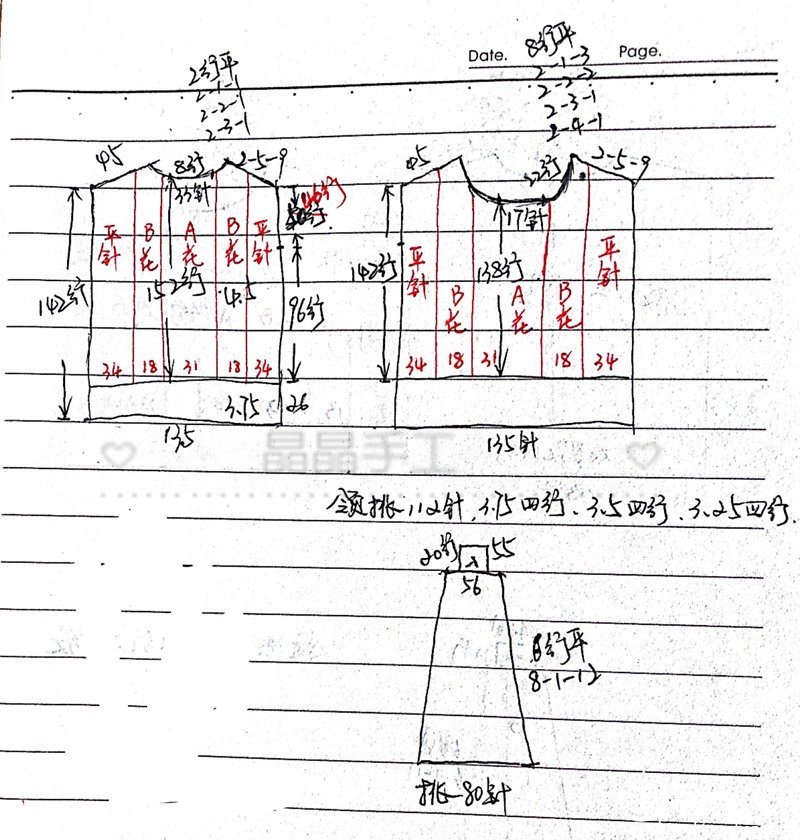 Date. Page.
2行平
2-1-1
2-2-1
2-3-1
8行平
2-1-3
2-2-2
2-3-1
2-4-1
45
8行
2-5-9
33针
46行
142行
152行
4.5
96行
平针
B花
A花
B花
平针
34
18
31
18
34
3.75
26
135
45
22行
2-5-9
17针
142行
138行
平针
B花
A花
B花
平针
34
18
31
18
34
135针
晶晶手工
领挑112针,3.75四行、3.5四行、3.25四行.
20行
55
56
6行平
8-1-12
挑80针